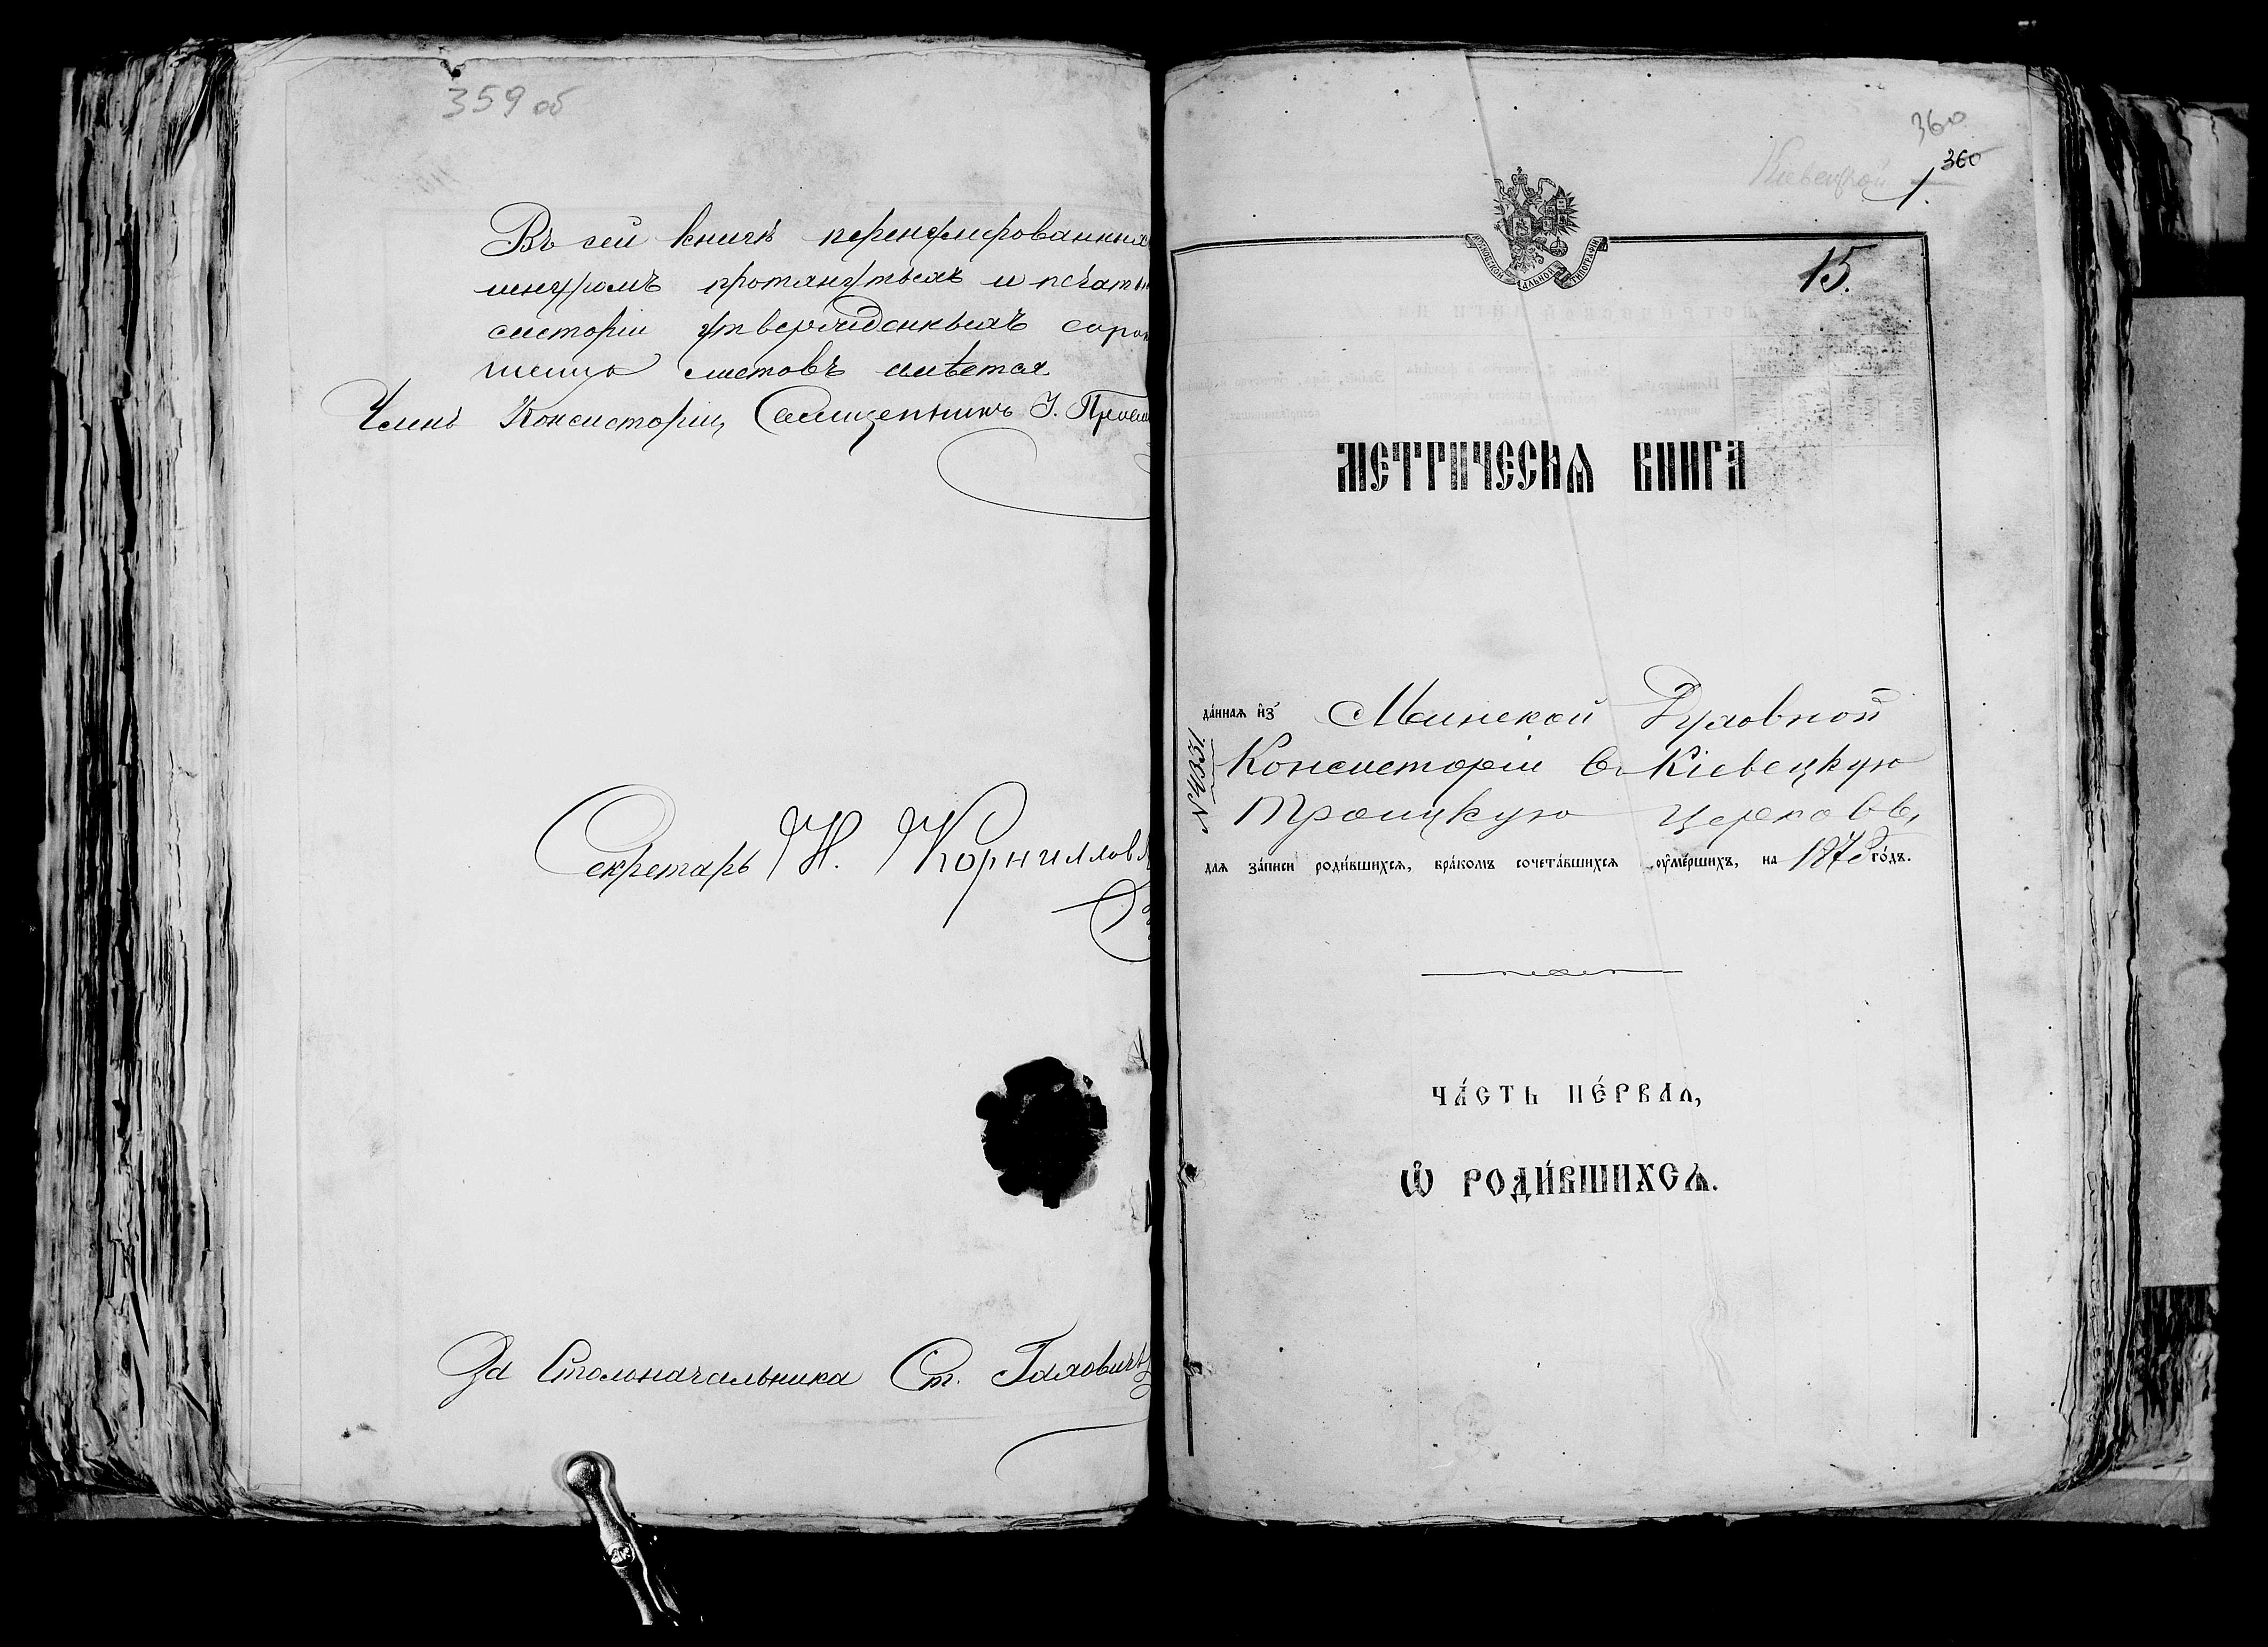 359 об
Въ сей книгѣ перенумерованныхъ
шнуромъ протянутыхъ и печатью
систоріи утвержденныхъ сорок
листовъ имѣется.
Членъ Консисторіи, Священникъ І.
Секретарь Н. Корниллов
За Столоначальника Ст. Галовичъ
360
360
Кіевецкой 1.
15.
МЕТРИЧЕСКАѦ КНИГА
да́ннаѧ и҆з̾ Минской Духовной
Консисторіи в Кіевецкую
Троицкую церковь,
для за́писи роди́вшихсѧ, бра́комъ сочета́вшихсѧ оуме́ршихъ, на го́дъ.
№ 4351.
ЧА́СТЬ ПЕ́РВАѦ,
Ѡ РОДИ́ВШИХСѦ.